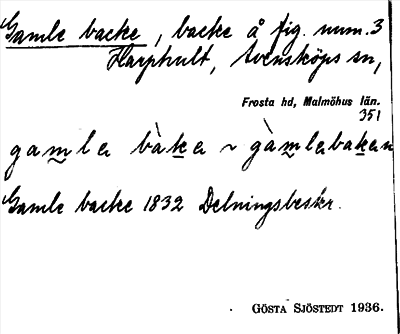 Gamle backe, backe å fig. num. 3
Harphult, Svensköps sn,
Frosta hd, Malmöhus län.
351
gamla bàka ~ gàmlabakan
Gamle backe 1832 Delningsbeskr.
GÖSTA SJÖSTEDT 1936.